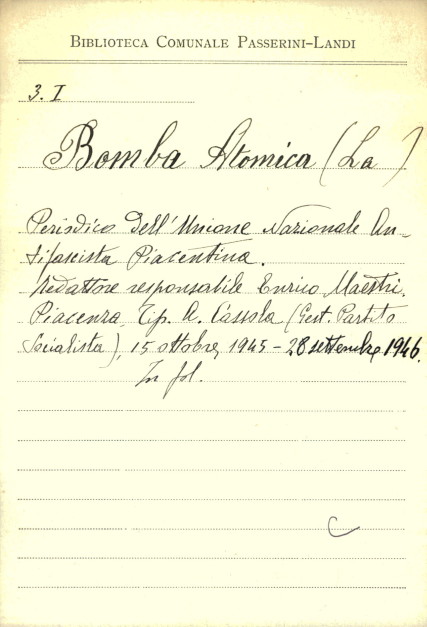 BIBLIOTECA COMUNALE PASSERINI-LANDI
3. I
Bomba Atomica (La)
Periodico dell'Unione Nazionale An-
tifascista Piacentina.
Redattore responsabile Enrico Maestri.
Piacenza, Tip. A. Cassola (Gest. Partito
Socialista), 15 ottobre 1945 - 28 settembre 1946.
In fol.
C